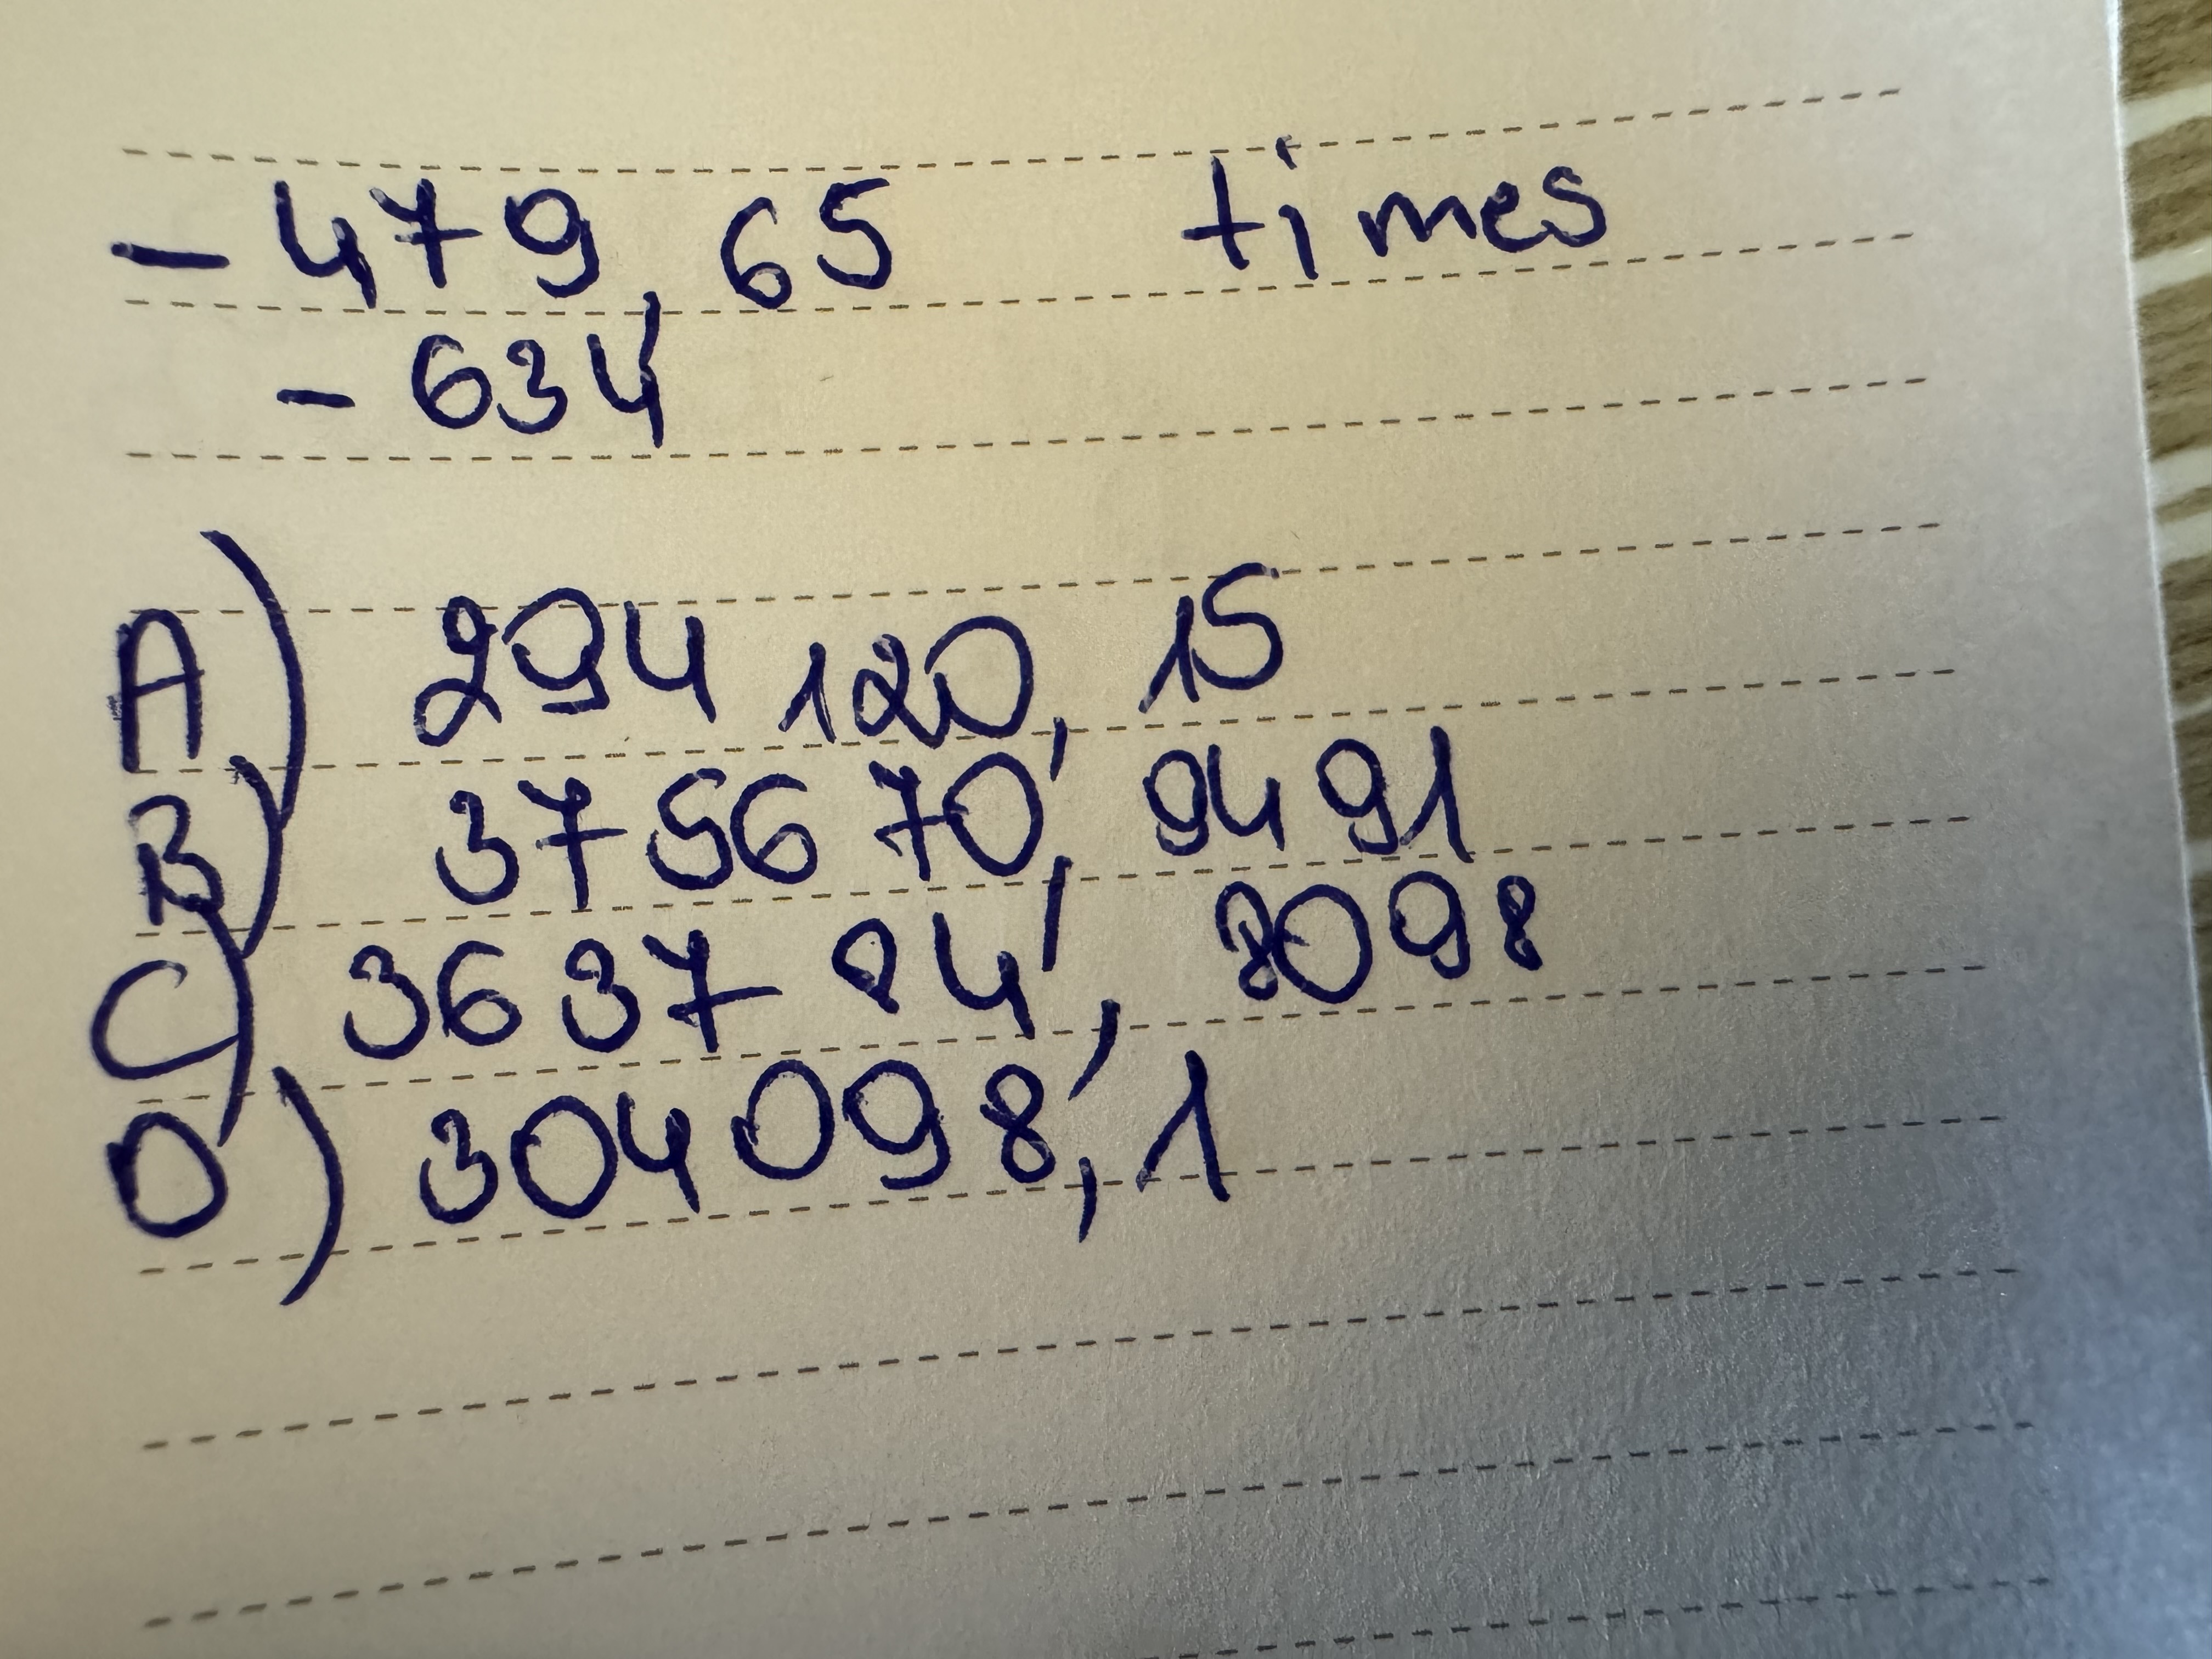 -479,65 times
-634
A) 294 120,15
B) 375670,9491
C) 363794,8098
D) 304098,1